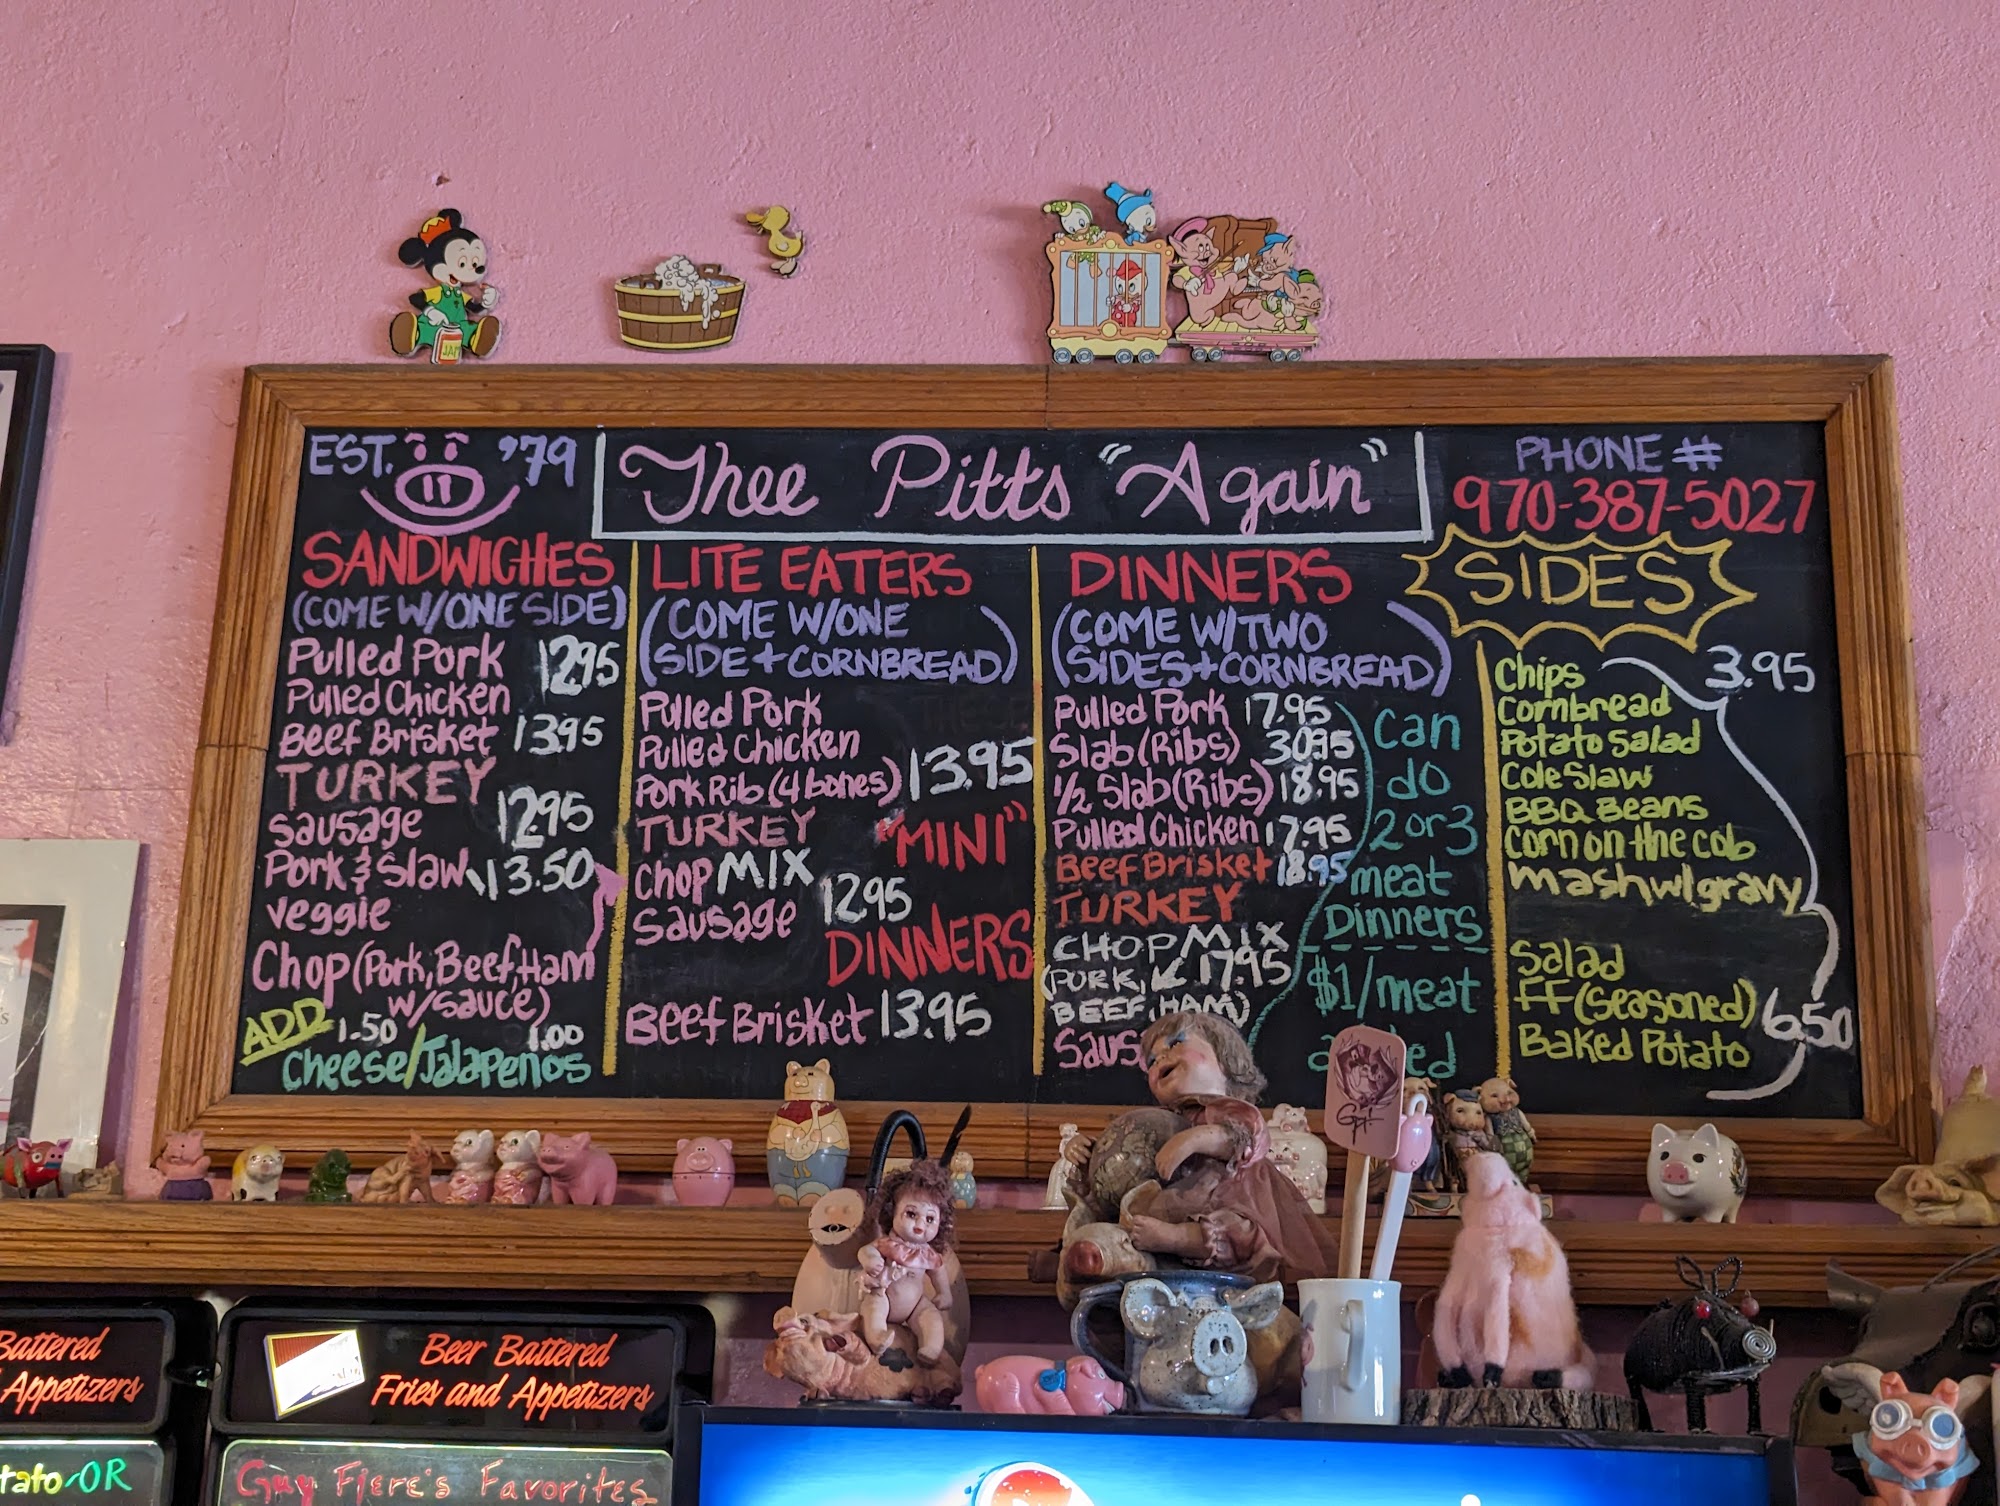 EST. '79
Thee Pitts "Again"
PHONE #
970-387-5027
SANDWICHES
(COME W/ONE SIDE)
Pulled Pork 12.95
Pulled Chicken
Beef Brisket 13.95
TURKEY
Sausage 12.95
Pork & Slaw 13.50
Veggie
Chop (Pork, Beef, Ham
w/sauce)
ADD 1.50 1.00
Cheese/Jalapeños
LITE EATERS
(COME W/ONE
SIDE + CORNBREAD)
Pulled Pork
Pulled Chicken
Pork Rib (4 bones) 13.95
TURKEY
Chop MIX
Sausage 12.95
"MINI"
DINNERS
Beef Brisket 13.95
DINNERS
(COME W/TWO
SIDES + CORNBREAD)
Pulled Pork 17.95
Slab (Ribs) 30.95
1/2 Slab (Ribs) 18.95
Pulled Chicken 17.95
Beef Brisket 18.95
TURKEY
CHOP MIX
(PORK, 17.95
BEEF, HAM)
Saus
Can
do
2 or 3
meat
Dinners
$1/meat
SIDES
Chips 3.95
Cornbread
Potato Salad
Cole Slaw
BBQ Beans
Corn on the cob
Mash w/gravy
Salad
FF (Seasoned) 6.50
Baked Potato
JAM
Battered
Appetizers
tato OR
Beer Battered
Fries and Appetizers
Guy Fiere's Favorites